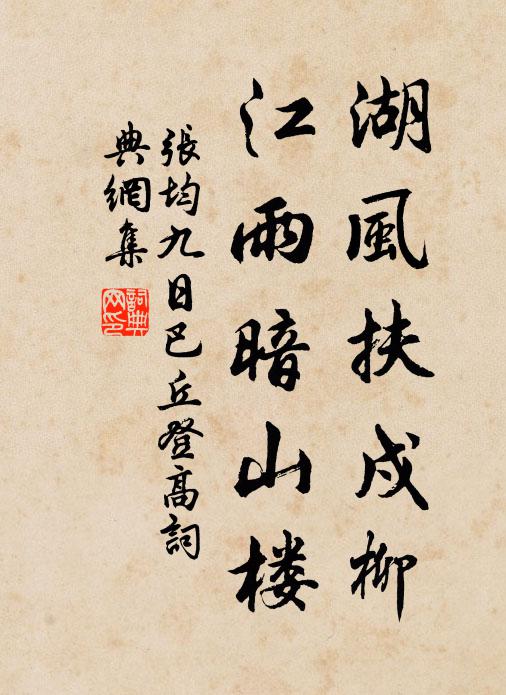 湖風扶戍柳
江雨暗山楼
張均九日巴丘登高詞
典網集
詞典网印